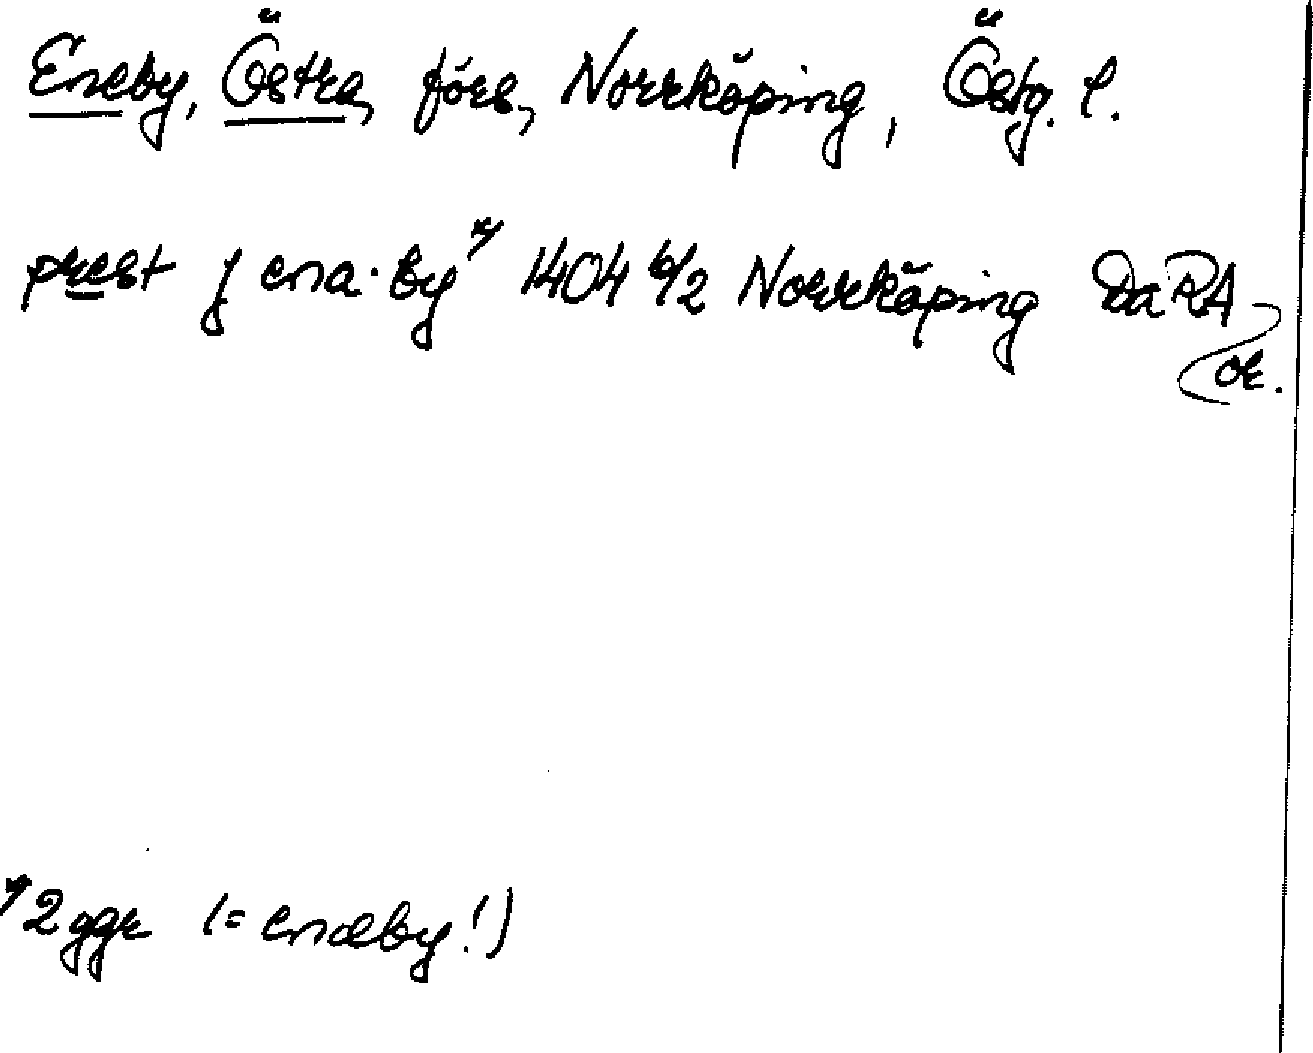 Eneby, Östra, förs, Norrköping, Östg. l.
prest j ena. by x) 1404 6/2 Norrköping DaRA
or.
x) 2 ggr (= enæby!)